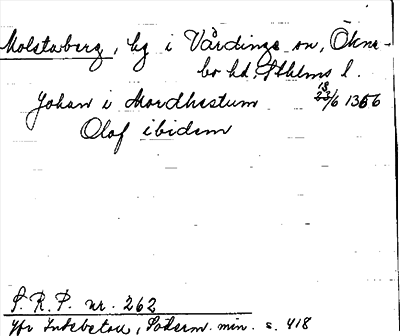 Molstaberg, by i Vårdinge sn, Ökne-
bo hd, Sthlms l.
Johan i Mordhastum 18 23/6 1356
Olof ibidem
S. R. P. nr. 262
Jfr , Söderm. min. s. 418